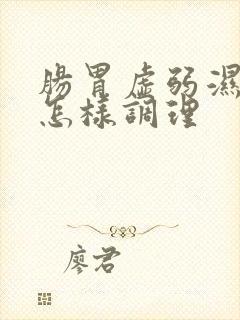 腸胃虛弱濕
怎樣調理
廖君